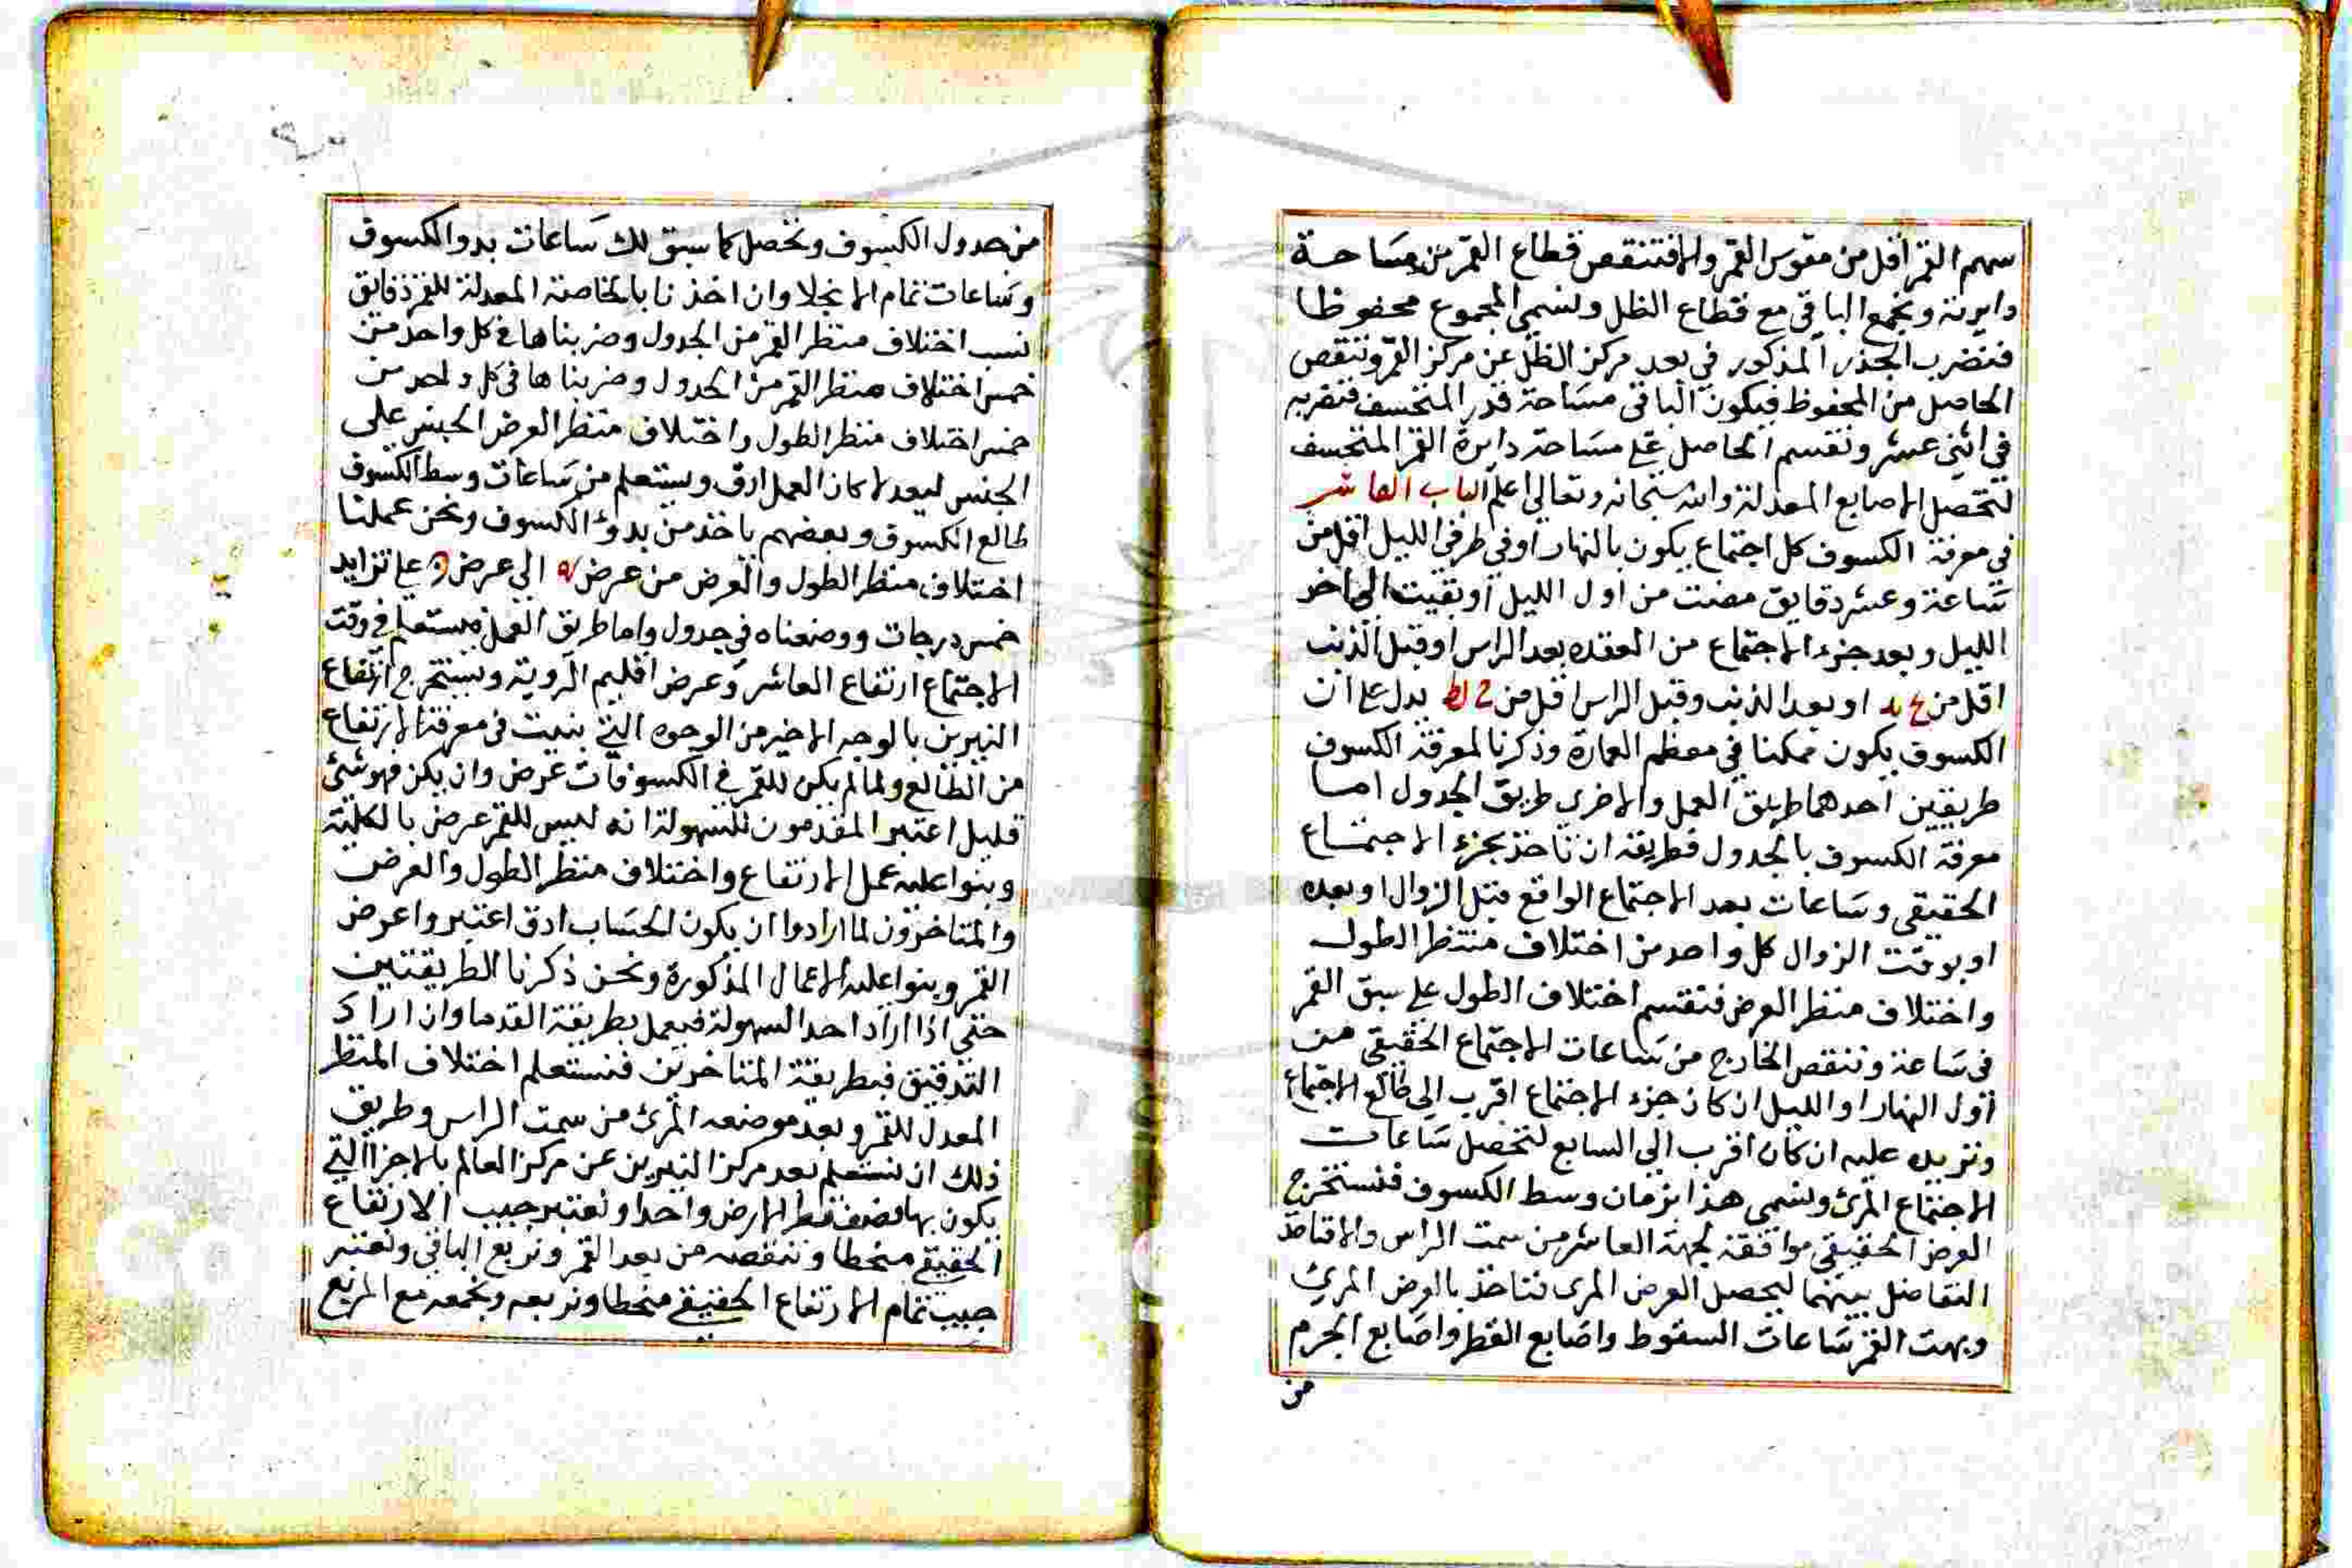 سهم القمر اقل من مقوس القمر والا فتنقص قطاع القمر من مساحة
دايرته ونجمع الباقي مع قطاع الظل ونسمي المجموع محفوظا
فنضرب الجذر المذكور في بعد مركز الظل عن مركز القمر وننقص
الحاصل من المحفوظ فيكون الباقي مساحة قدر المنخسف فنضربه
في اثني عشر ونقسم الحاصل على مساحة دايرة القمر المنخسف
لتحصل الاصابع المعدلة والله سبحانه وتعالى اعلم الباب العاشر
في معرفة الكسوف كل اجتماع يكون بالنهار او في طرفي الليل اقل من
ساعة وعشر دقايق مضت من اول الليل او بقيت الى اخر
الليل وبعد جزء الاجتماع من العقده بعد الراس او قبل الذنب
اقل من او بعد الذنب وقبل الراس اقل من يدل على ان
الكسوف يكون ممكنا في معظم العمارة وذكرنا لمعرفة الكسوف
طريقين احدهما طريق العمل والاخرى طريق الجدول اما
معرفة الكسوف بالجدول فطريقه ان ناخذ بجزء الاجتماع
الحقيقي وساعات بعد الاجتماع الواقع قبل الزوال او بعده
او بوقت الزوال كل واحد من اختلاف منظر الطول
واختلاف منظر العرض فنقسم اختلاف الطول على سبق القمر
في ساعة وننقص الخارج من ساعات الاجتماع الحقيقي من
اول النهار او الليل ان كان جزء الاجتماع اقرب الى طالع الاجتماع
ونزيده عليه ان كان اقرب الى السابع لتحصل ساعات
الاجتماع المرئ ونسمي هذا بزمان وسط الكسوف فنستخرج
العرض الحقيقي موافقة لجهة العاشر من سمت الراس والا فناخذ
التفاضل بينهما ليحصل العرض المرى فناخذ بالعرض المرئ
وبهت القمر ساعات السقوط واصابع القطر واصابع الجرم
من
من جدول الكسوف وتحصل كما سبق لك ساعات بدو الكسوف
وساعات تمام الانجلا وان اخذنا بالخاصة المعدلة للقمر دقايق
نسب اختلاف منظر القمر من الجدول وضربناها في كل واحد من
خمس اختلاف منظر القمر من الجدول وضربناها في كل واحد من
خمس اختلاف منظر الطول واختلاف منظر العرض الجنس على
الجنس ليعدلا كان العمل ادق ويستعلم من ساعات وسط الكسوف
طالع الكسوف وبعضهم ياخذ من بدؤ الكسوف ونحن عملنا
اختلاف منظر الطول والعرض من عرض الى عرض على تزايد
خمس درجات ووضعناه في جدول واما طريق العمل فيستعلم في وقت
الاجتماع ارتفاع العاشر وعرض اقليم الروية ويستخرج ارتفاع
النيرين بالوجه الاخير من الوجوه التي بنيت في معرفة الارتفاع
من الطالع ولما لم يكن للقمر في الكسوفات عرض وان يكن فهو شئ
قليل اعتبر المقدمون للسهولة انه ليس للقمر عرض بالكلية
وبنوا عليه عمل الارتفاع واختلاف منظر الطول والعرض
والمتاخرون لما ارادوا ان يكون الحساب ادق اعتبروا عرض
القمر وبنوا عليه الاعمال المذكورة ونحن ذكرنا الطريقتين
حتى اذا اراد احد السهولة فيعمل بطريقة القدما وان اراد
التدقيق فبطريقة المتاخرين فنستعلم اختلاف المنظر
المعدل للقمر وبعد موضعه المرئ من سمت الراس وطريق
ذلك ان نستعلم بعد مركز النيرين عن مركز العالم بالاجزا التي
يكون بها نصف قطر الارض واحدا ونعتبر جيب الارتفاع
الحقيقي منحطا وننقصه من بعد القمر ونربع الباقي ونعتبر
جيب تمام الارتفاع الحقيقي منحطا ونربعه ونجمعه مع المربع